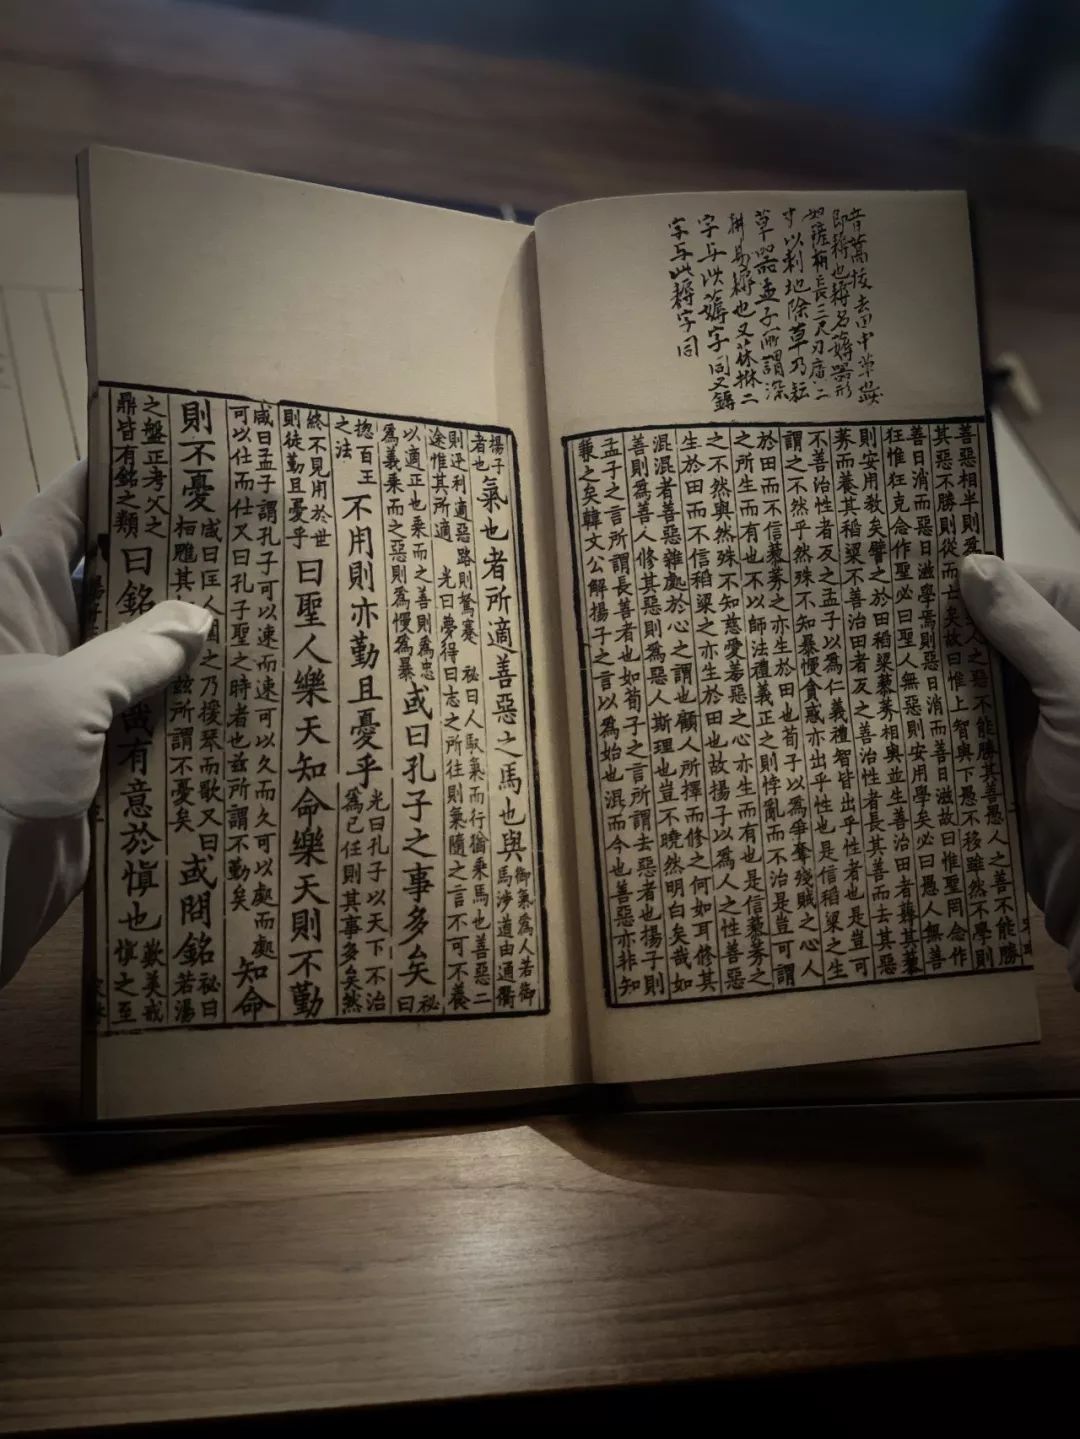 音蒿拔去田中草也
即耨也耨名薅器形
如鏟柄長三尺刃廣二
寸以刺地除草乃耘
草器孟子所謂深
耕易耨也又茠揪二
字与此薅字同又鎒
字与此耨字同
善惡相半則人之惡不能勝其善愚人之善不能勝
其惡不勝則從而亡矣故曰惟上智與下愚不移雖然不學則
善日消而惡日滋學焉則惡日消而善日滋故曰惟聖罔念作
狂惟狂克念作聖必曰聖人無惡則安用學矣必曰愚人無善
則安用敎矣譬之於田稻粱藜莠相與並生善治田者薅其藜
莠而養其稻粱不善治田者反之善治性者長其善而去其惡
不善治性者反之孟子以爲仁義禮智皆出乎性者也是豈可
謂之不然乎然殊不知暴慢貪惑亦出乎性也是信稻粱之生
於田而不信藜莠之亦生於田也荀子以爲爭奪殘賊之心人
之所生而有也不以師法禮義正之則悖亂而不治是豈可謂
之不然與然殊不知慈愛羞惡之心亦生而有也是信藜莠之
生於田而不信稻粱之亦生於田也故揚子以爲人之性善惡
混混者善惡雜處於心之謂也顧人所擇而修之何如耳修其
善則爲善人修其惡則爲惡人斯理也豈不曉然明白矣哉如
孟子之言所謂長善者也如荀子之言所謂去惡者也揚子則
兼之矣韓文公解揚子之言以爲始也混而今也善惡亦非知
揚子者也氣也者所適善惡之馬也與御氣爲人若御馬涉道由通衢
則迅利適惡路則駑蹇 祕曰人馭氣而行猶乘馬也善惡二
途惟其所適 光曰夢得曰志之所往則氣隨之言不可不養
以適正也乘而之善則爲忠爲義乘而之惡則爲慢爲暴或曰孔子之事多矣祕曰
揔百王之法不用則亦勤且憂乎光曰孔子以天下不治爲己任則其事多矣然
終不見用於世則徒勤且憂乎曰聖人樂天知命樂天則不勤
咸曰孟子謂孔子可以速而速可以久而久可以處而處可以仕而仕又曰孔子聖之時者也兹所謂不勤矣知命
則不憂咸曰匡人圍之乃援琴而歌又曰栢魋其兹所謂不憂矣或問銘祕曰若湯
之盤正考父之鼎皆有銘之類曰銘哉有意於慎也歎美戒慎之至